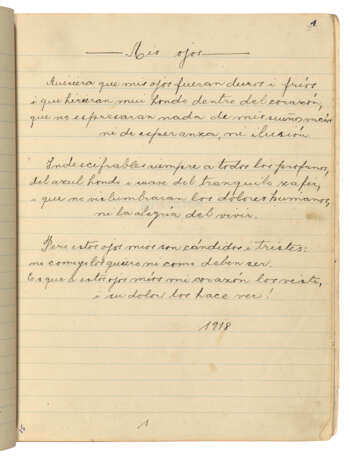 1
Mis ojos
Quisiera que mis ojos fueran duros i fríos
i que hirieran mui hondo dentro del corazón,
que no espresaran nada de mis sueños vacíos
ni de esperanza, ni ilusión.
Indescifrables siempre a todos los profanos,
del azul hondo i suave del tranquilo zafir,
i que no vislumbraran los dolores humanos,
ni la alegría del vivir.
Pero estos ojos míos son cándidos i tristes:
no como yo los quiero ni como deben ser.
Es que a estos ojos míos mi corazón los viste,
i su dolor los hace ver!
1918
1